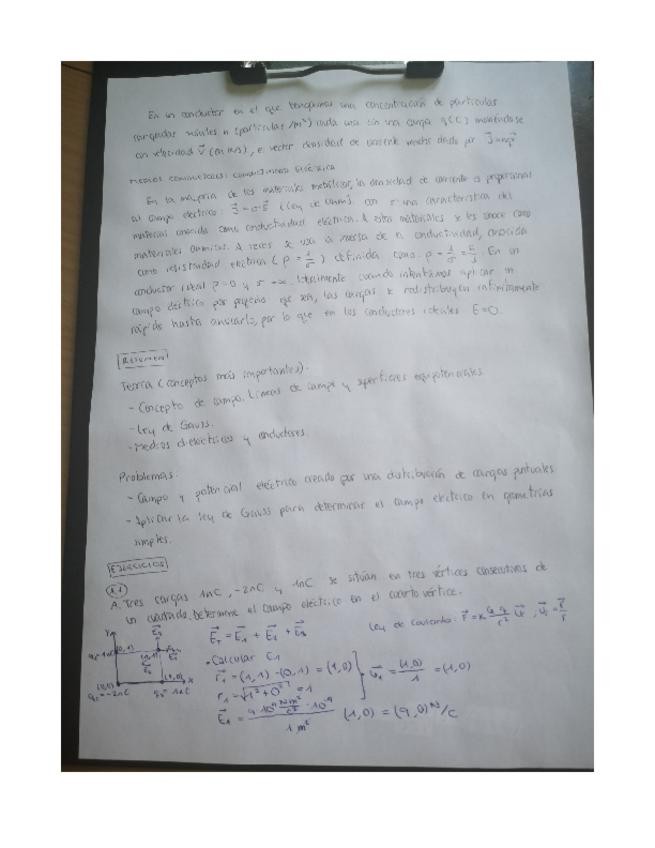 En un conductor en el que tengamos una concentración de partículas
cargadas n (partículas/m³) cada una con una carga q(C) moviéndose
con velocidad V⃗ (m/s), el vector densidad de corriente vendrá dado por J⃗=nqv⃗
En la mayoría de los materiales metálicos, la densidad de corriente es proporcional
al campo eléctrico: J⃗=σ·E⃗ (Ley de Ohm), con σ una característica del
material conocida como conductividad eléctrica. A estos materiales se les conoce como
materiales óhmicos. A veces se usa la inversa de la conductividad, conocida
como resistividad eléctrica (ρ = 1/σ) definida como: ρ = 1/σ = E/J. En un
conductor ideal ρ=0 y σ→∞. Idealmente cuando intentamos aplicar un
campo eléctrico por pequeño que sea, las cargas se redistribuyen infinitamente
rápido hasta anularlo, por lo que en los conductores ideales E=0.
Resumen
Teoría (conceptos más importantes).
- Concepto de campo. Líneas de campo y superficies equipotenciales.
- Ley de Gauss.
- Medios dieléctricos y conductores.
Problemas:
- Campo y potencial eléctrico creado por una distribución de cargas puntuales
- Aplicar la ley de Gauss para determinar el campo eléctrico en geometrías
simples.
EJERCICIOS
A.1
A. Tres cargas 1nC, -2nC y 1nC se sitúan en tres vértices consecutivos de
un cuadrado. Determine el campo eléctrico en el cuarto vértice.
Ley de Coulomb:
(0,1) (1,1)
(0,0) (1,0) x
q₂=-2nC q₃=1nC
• Calcular E₁
r⃗₁=(1,1)-(0,1)=(1,0)
r₁=√(1²+0²)=1
u⃗₁=(1,0)/1=(1,0)
E⃗₁= 9·10⁹ Nm²/C² ·10⁻⁹ / 1m² (1,0)=(9,0) N/C